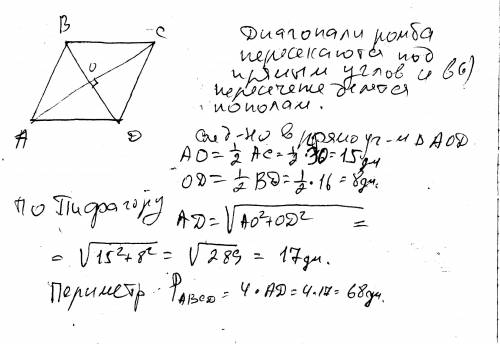 B C
O
A D
Диагонали ромба
пересекаются под
прямым углом и в
пересечение делятся
пополам.
след-но в прямоуг-м △ AOD
AO = 1/2 AC = 1/2 · 30 = 15 дм
OD = 1/2 BD = 1/2 · 16 = 8 дм.
по Пифагору AD = √AO²+OD² =
= √15²+8² = √289 = 17 дм.
Периметр P ABCD = 4 · AD = 4 · 17 = 68 дм.